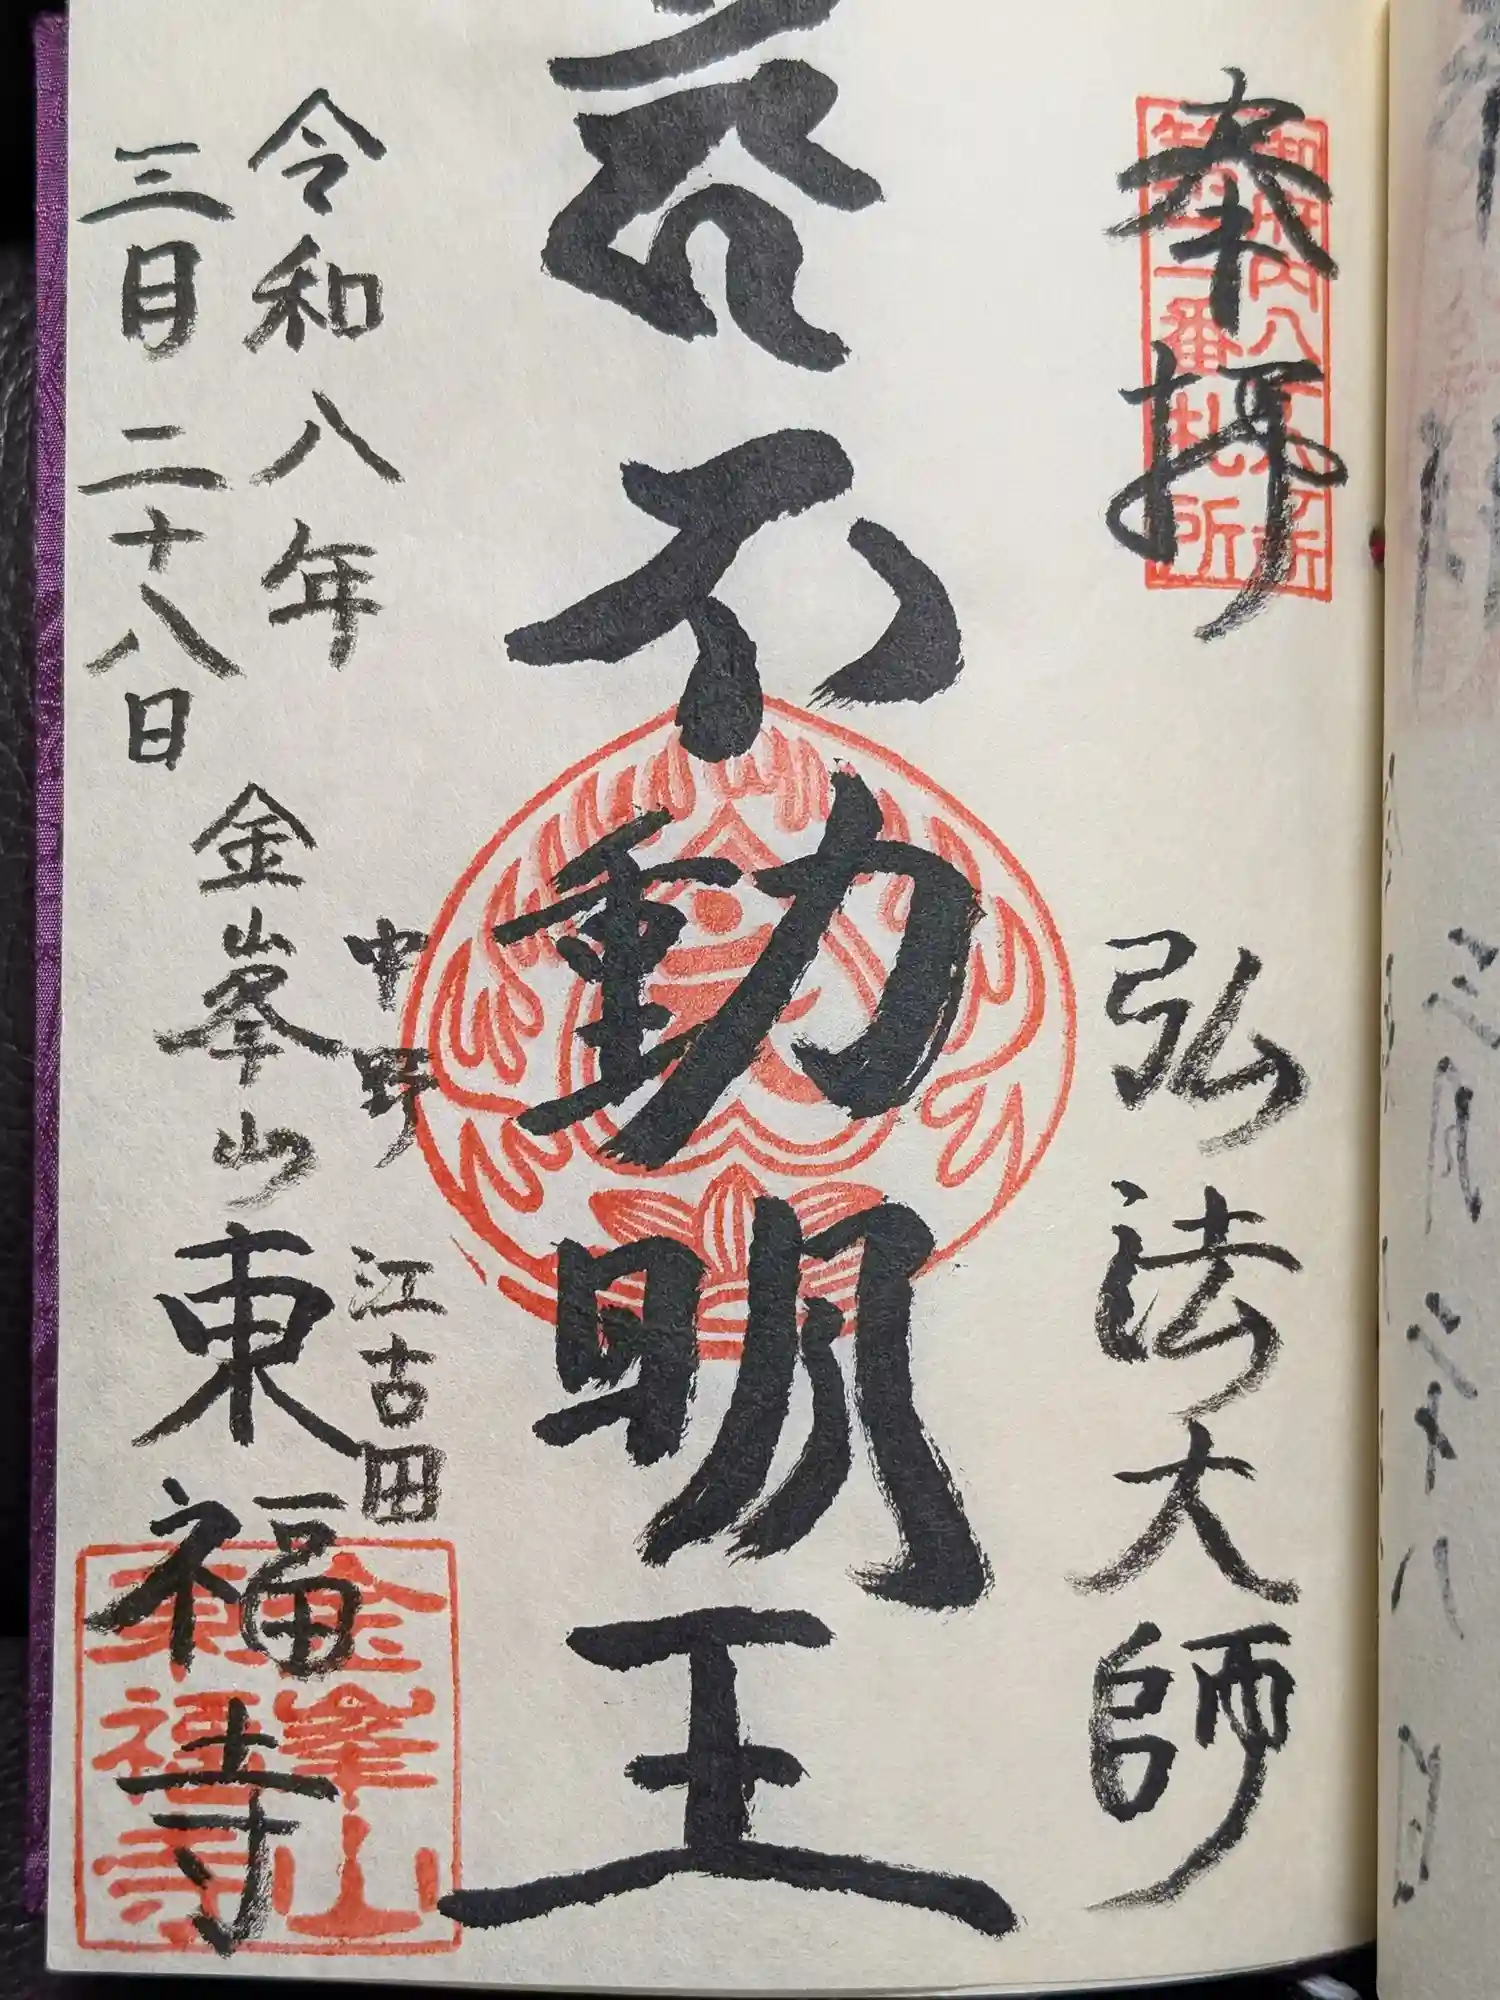 奉拝
弘法大師
御府内八
一番札所
不動明王
令和八年
三月二十八日
中野 江古田
金峯山 東福寺
金峯山
東福寺